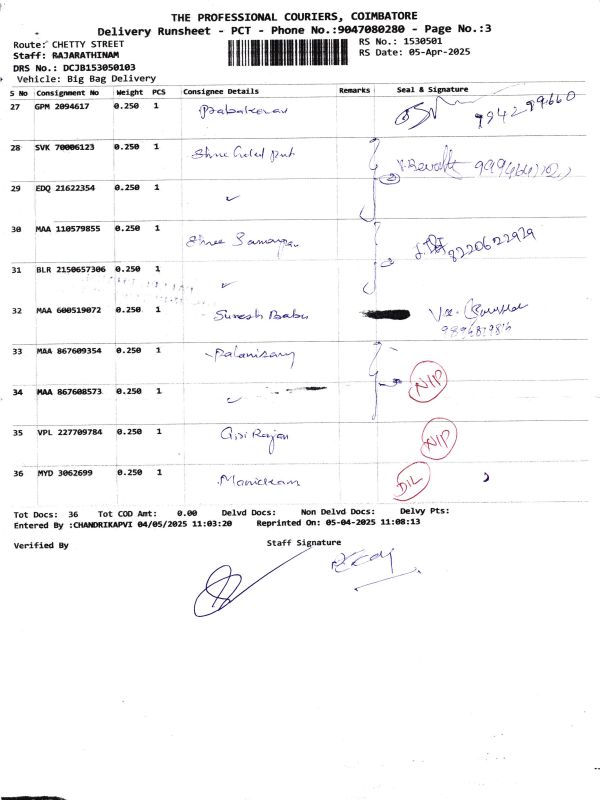 THE PROFESSIONAL COURIERS, COIMBATORE
Delivery Runsheet - PCT - Phone No.:9047080280 - Page No.:3
Route: CHETTY STREET
RS No.: 1530501
Staff: RAJARATHINAM
RS Date: 05-Apr-2025
DRS No.: DCJB153050103
Vehicle: Big Bag Delivery
S No Consignment No Weight PCS Consignee Details Remarks Seal & Signature
27 GPM 2094617 0.250 1 Prabakaran
28 SVK 70006123 0.250 1
29 EDQ 21622354 0.250 1 ✓
30 MAA 110579855 0.250 1 Shree 8220622929
31 BLR 2150657306 0.250 1 ✓
32 MAA 600519072 0.250 1 Suresh Babu
33 MAA 867609354 0.250 1 Palanisamy
34 MAA 867608573 0.250 1 ✓ NIP
35 VPL 227709784 0.250 1 Giri Rajan NIP
36 MYD 3062699 0.250 1 Manickam DIL
Tot Docs: 36 Tot COD Amt: 0.00 Delvd Docs: Non Delvd Docs: Delvy Pts:
Entered By :CHANDRIKAPVI 04/05/2025 11:03:20 Reprinted On: 05-04-2025 11:08:13
Verified By Staff Signature